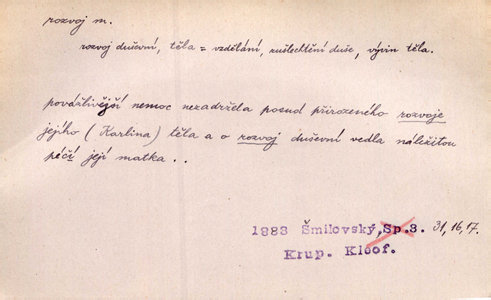 rozvoj m.
rozvoj duševní, těla = vzdělání, zušlechtění duše, vývin těla.
povážlivější nemoc nezadržela posud přirozeného rozvoje
jejího (Karlina) těla a o rozvoj duševní vedla náležitou
péčí její matka..
1883 Šmilovský, Sp. 3. 31, 16, 17.
Krup. Kloof.